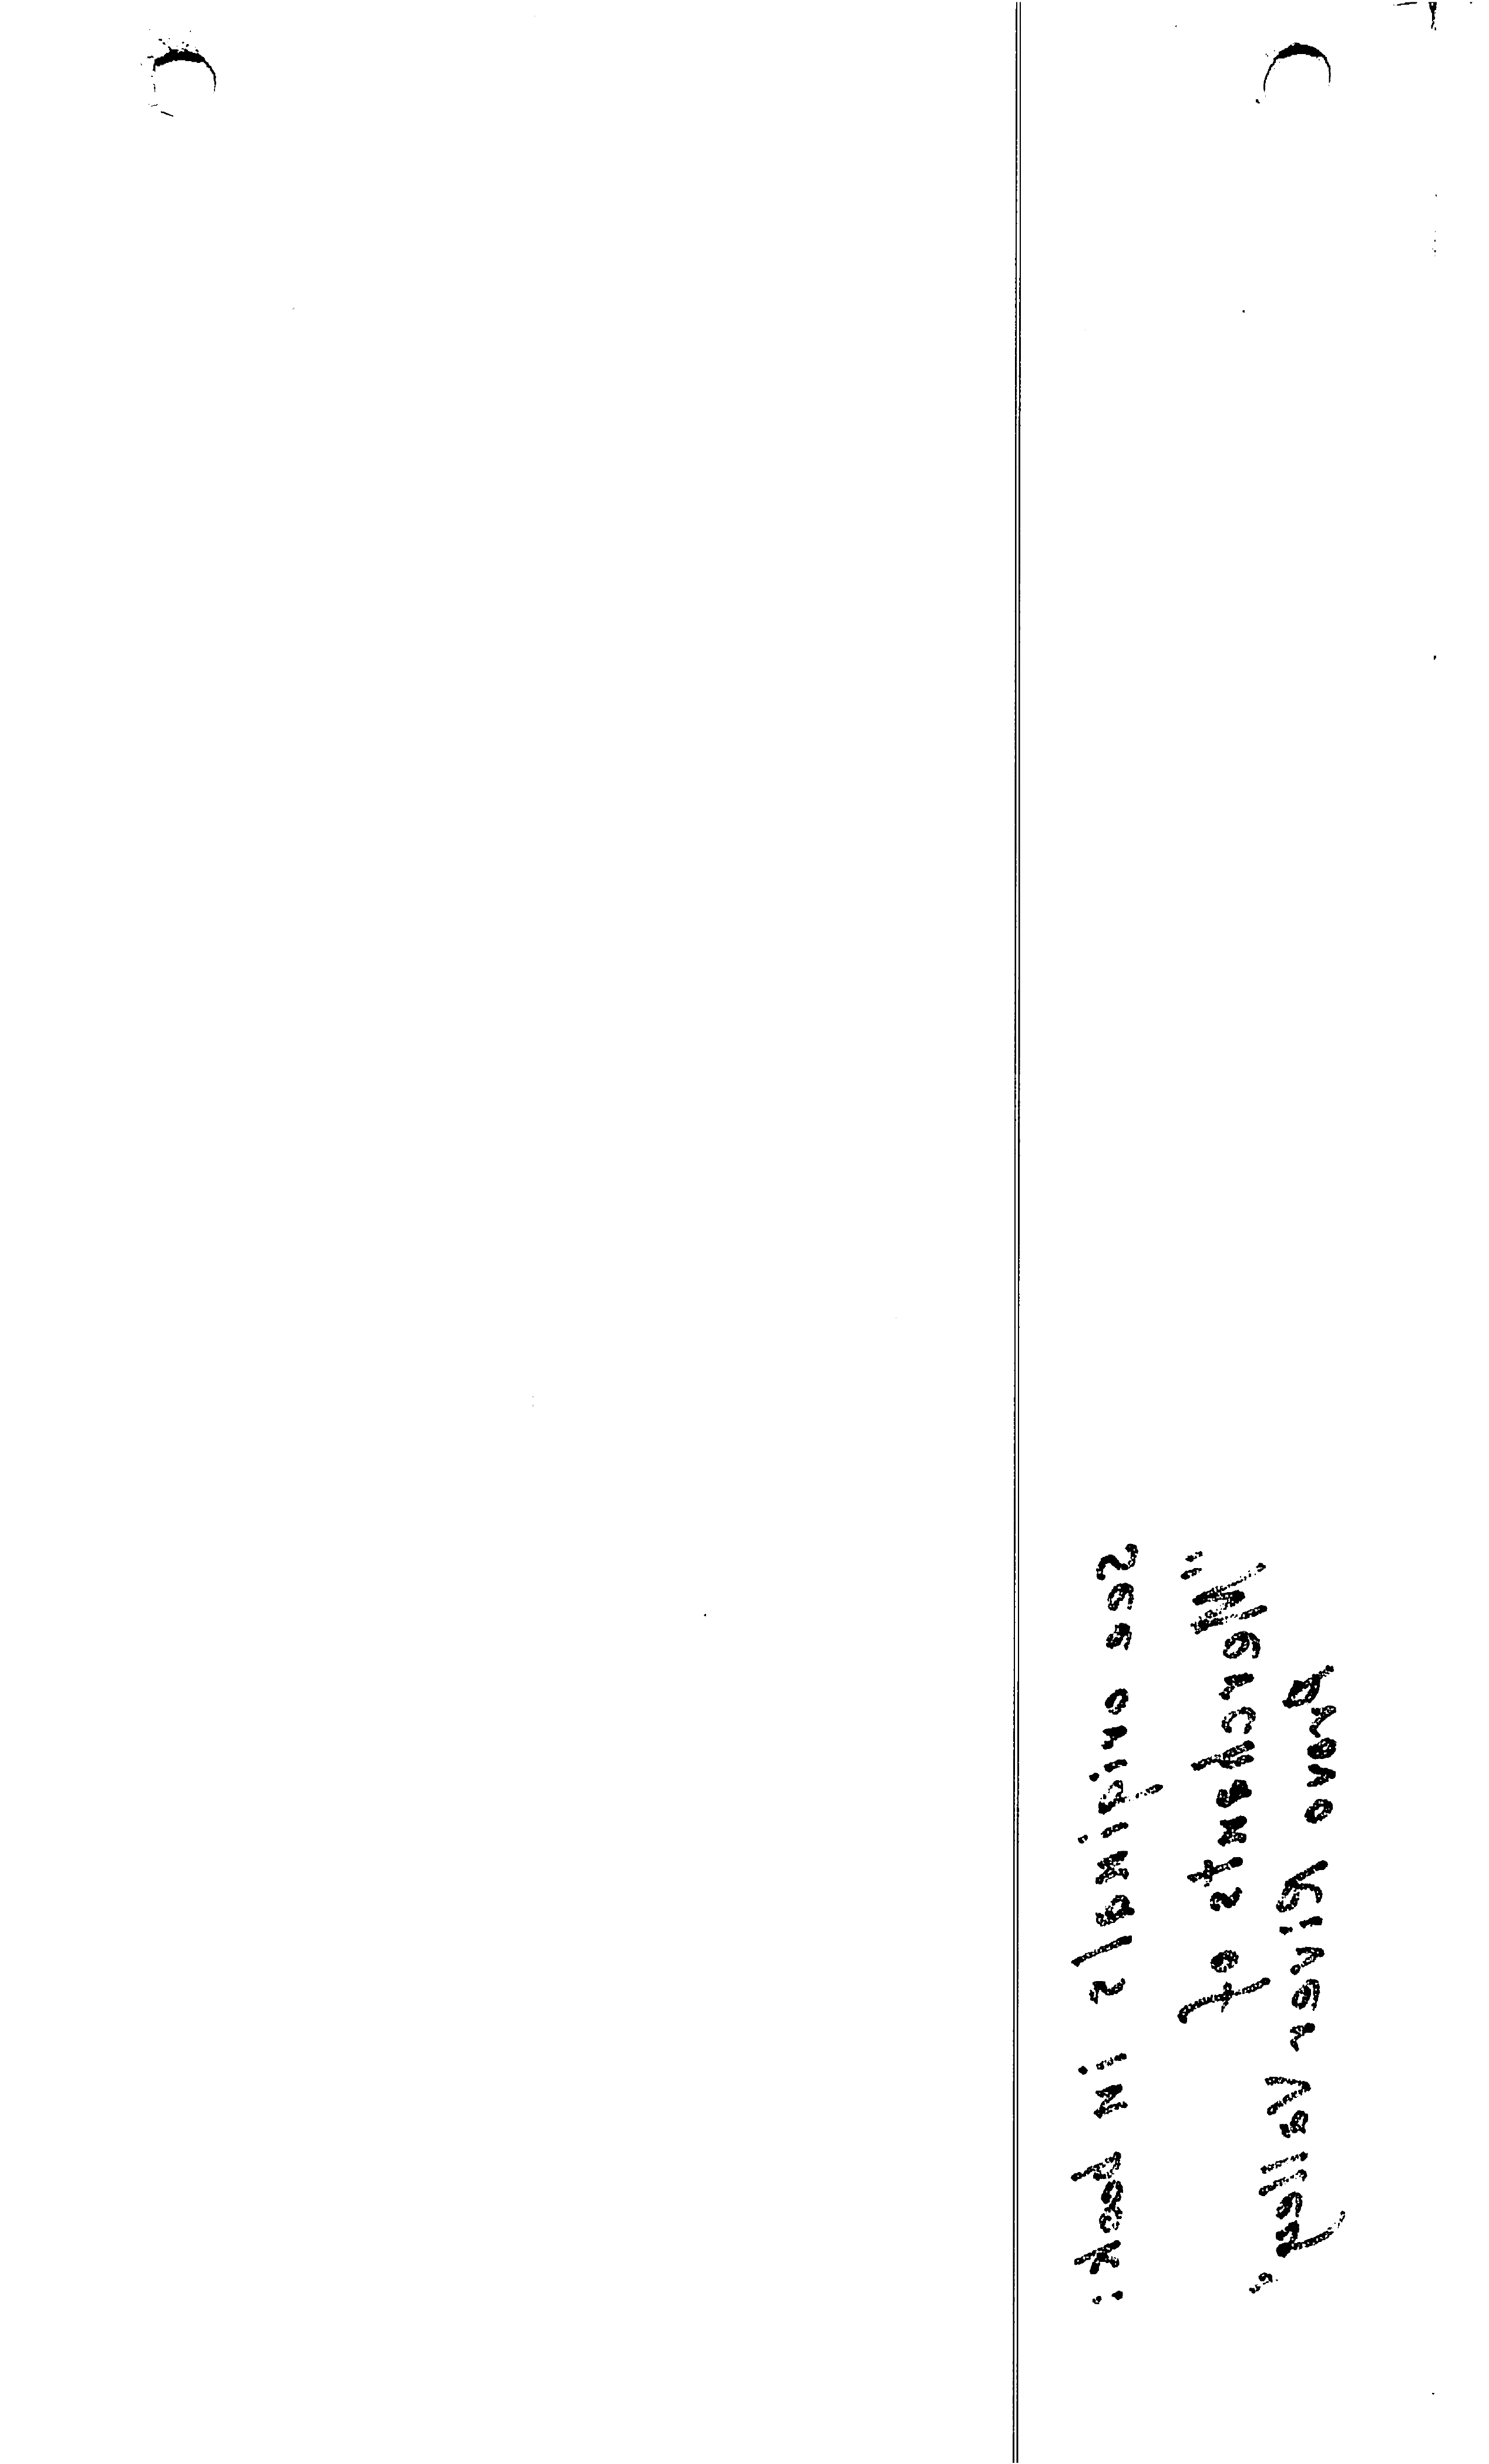 see originals in book:
"Merchants of
Provo River Valley"